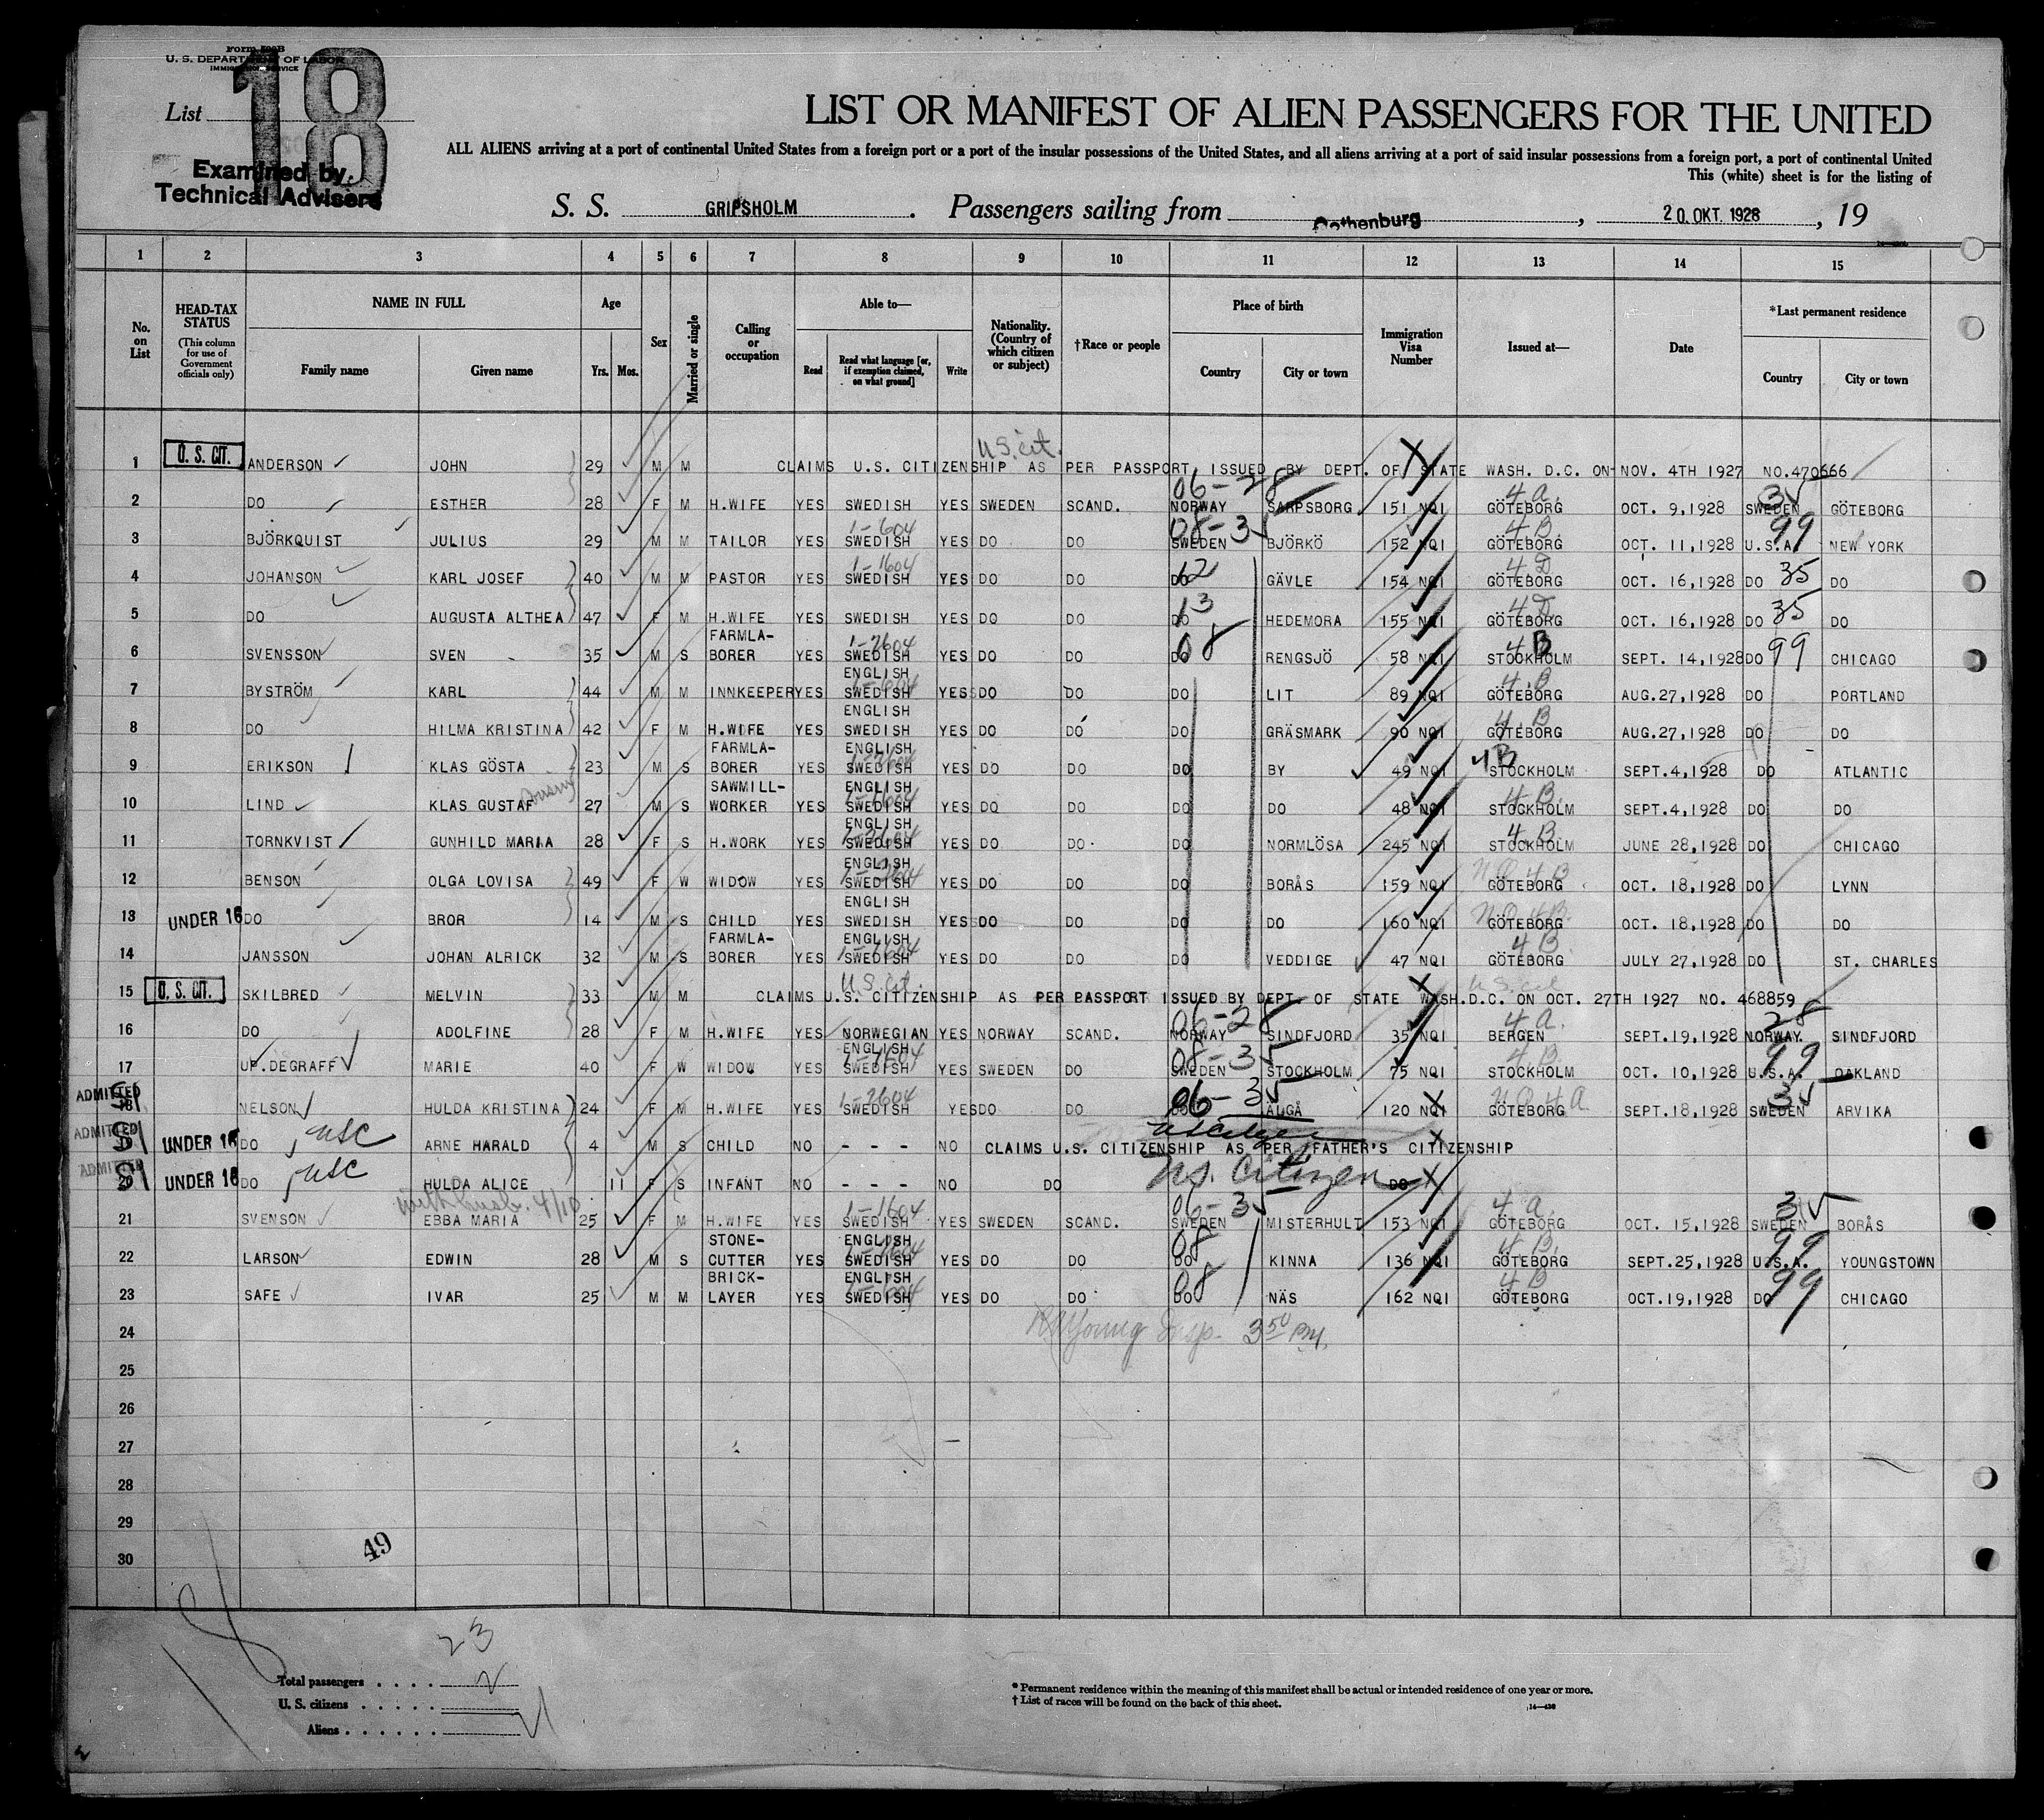 Form 500B
U. S. DEPARTMENT OF LABOR
IMMIGRATION SERVICE
List 18
Examined by
Technical Advisers
LIST OR MANIFEST OF ALIEN PASSENGERS FOR THE UNITED
ALL ALIENS arriving at a port of continental United States from a foreign port or a port of the insular possessions of the United States, and all aliens arriving at a port of said insular possessions from a foreign port, a port of continental United
This (white) sheet is for the listing of
S. S. GRIPSHOLM . Passengers sailing from Gothenburg , 20. OKT. 1928 , 19
1 2 3 4 5 6 7 8 9 10 11 12 13 14 15
No. on List
HEAD-TAX STATUS
(This column for use of Government officials only)
NAME IN FULL
Family name Given name
Age
Yrs. Mos.
Sex
Married or single
Calling or occupation
Able to—
Read Read what language [or, if exemption claimed, on what ground] Write
Nationality. (Country of which citizen or subject)
†Race or people
Place of birth
Country City or town
Immigration Visa Number
Issued at—
Date
*Last permanent residence
Country City or town
U.S. cit.
1 U. S. CIT. ANDERSON JOHN 29 M M CLAIMS U.S. CITIZENSHIP AS PER PASSPORT ISSUED BY DEPT. OF STATE WASH. D.C. ON NOV. 4TH 1927 NO.470666
06-28 4 A. 35
2 DO ESTHER 28 F M H.WIFE YES SWEDISH YES SWEDEN SCAND. NORWAY SARPSBORG 151 NQI GÖTEBORG OCT. 9,1928 SWEDEN GÖTEBORG
1-604 08-35 4 B. 99
3 BJÖRKQUIST JULIUS 29 M M TAILOR YES SWEDISH YES DO DO SWEDEN BJÖRKÖ 152 NQI GÖTEBORG OCT. 11,1928 U.S.A. NEW YORK
1-1604 12 4 D 35
4 JOHANSON KARL JOSEF 40 M M PASTOR YES SWEDISH YES DO DO DO GÄVLE 154 NQI GÖTEBORG OCT. 16,1928 DO DO
13 4 D 35
5 DO AUGUSTA ALTHEA 47 F M H.WIFE YES SWEDISH YES DO DO DO HEDEMORA 155 NQI GÖTEBORG OCT. 16,1928 DO DO
FARMLA- 1-2604 08 4 B 99
6 SVENSSON SVEN 35 M S BORER YES SWEDISH YES DO DO DO RENGSJÖ 58 NQI STOCKHOLM SEPT. 14,1928 DO CHICAGO
ENGLISH 1-604 4. B
7 BYSTRÖM KARL 44 M M INNKEEPER YES SWEDISH YES DO DO DO LIT 89 NQI GÖTEBORG AUG.27,1928 DO PORTLAND
ENGLISH 4. B
8 DO HILMA KRISTINA 42 F M H.WIFE YES SWEDISH YES DO DO DO GRÄSMARK 90 NQI GÖTEBORG AUG.27,1928 DO DO
FARMLA- ENGLISH 4B
9 ERIKSON KLAS GÖSTA 23 M S BORER YES SWEDISH YES DO DO DO BY 49 NQI STOCKHOLM SEPT.4,1928 DO ATLANTIC
SAWMILL- ENGLISH 1-1604 4 B.
10 LIND KLAS GUSTAF 27 M S WORKER YES SWEDISH YES DO DO DO DO 48 NQI STOCKHOLM SEPT.4,1928 DO DO
ENGLISH 1-2604 4 B.
11 TORNKVIST GUNHILD MARIA 28 F S H.WORK YES SWEDISH YES DO DO DO NORMLÖSA 245 NQI STOCKHOLM JUNE 28,1928 DO CHICAGO
ENGLISH N Q 4 B
12 BENSON OLGA LOVISA 49 F W WIDOW YES SWEDISH YES DO DO DO BORÅS 159 NQI GÖTEBORG OCT. 18,1928 DO LYNN
ENGLISH N Q 4 B.
13 UNDER 16 DO BROR 14 M S CHILD YES SWEDISH YES DO DO DO DO 160 NQI GÖTEBORG OCT. 18,1928 DO DO
FARMLA- ENGLISH 1-1604 4 B.
14 JANSSON JOHAN ALRICK 32 M S BORER YES SWEDISH YES DO DO DO VEDDIGE 47 NQI GÖTEBORG JULY 27,1928 DO ST. CHARLES
U.S. cit. U.S. cit
15 U. S. CIT. SKILBRED MELVIN 33 M M CLAIMS U.S. CITIZENSHIP AS PER PASSPORT ISSUED BY DEPT. OF STATE WASH.D.C. ON OCT. 27TH 1927 NO. 468859
06-28 4 A. 28
16 DO ADOLFINE 28 F M H.WIFE YES NORWEGIAN YES NORWAY SCAND. NORWAY SINDFJORD 35 NQI BERGEN SEPT.19,1928 NORWAY. SINDFJORD
ENGLISH 1-1604 08-35 4 B. 99
17 UP.DEGRAFF MARIE 40 F W WIDOW YES SWEDISH YES SWEDEN DO SWEDEN STOCKHOLM 75 NQI STOCKHOLM OCT. 10,1928 U.S.A. OAKLAND
ADMITTED SI 1-2604 06-35 N Q 4 A. 35
18 NELSON HULDA KRISTINA 24 F M H.WIFE YES SWEDISH YES DO DO DO ÄLGÅ 120 NQI GÖTEBORG SEPT.18,1928 SWEDEN ARVIKA
ADMITTED SI USC US Citizen
19 UNDER 16 DO ARNE HARALD 4 M S CHILD NO - - - NO CLAIMS U.S. CITIZENSHIP AS PER FATHER'S CITIZENSHIP
ADMITTED SI USC U.S. Citizen
20 UNDER 16 DO HULDA ALICE 11 F S INFANT NO - - - NO DO DO
4/10 1-1604 06-35 4 A. 35
21 SVENSON EBBA MARIA 25 F M H.WIFE YES SWEDISH YES SWEDEN SCAND. SWEDEN MISTERHULT 153 NQI GÖTEBORG OCT. 15,1928 SWEDEN BORÅS
STONE- ENGLISH 1-1604 08 4 B. 99
22 LARSON EDWIN 28 M S CUTTER YES SWEDISH YES DO DO DO KINNA 136 NQI GÖTEBORG SEPT.25,1928 U.S.A. YOUNGSTOWN
BRICK- ENGLISH 1-604 08 4 B 99
23 SAFE IVAR 25 M M LAYER YES SWEDISH YES DO DO DO NÄS 162 NQI GÖTEBORG OCT.19,1928 DO CHICAGO
24 Young Insp. 3 50 PM.
25
26
27
28
29
30
49
18
23
Total passengers . . . .
2
U. S. citizens . . . . .
Aliens . . . . . . 21
* Permanent residence within the meaning of this manifest shall be actual or intended residence of one year or more.
† List of races will be found on the back of this sheet.
14—430